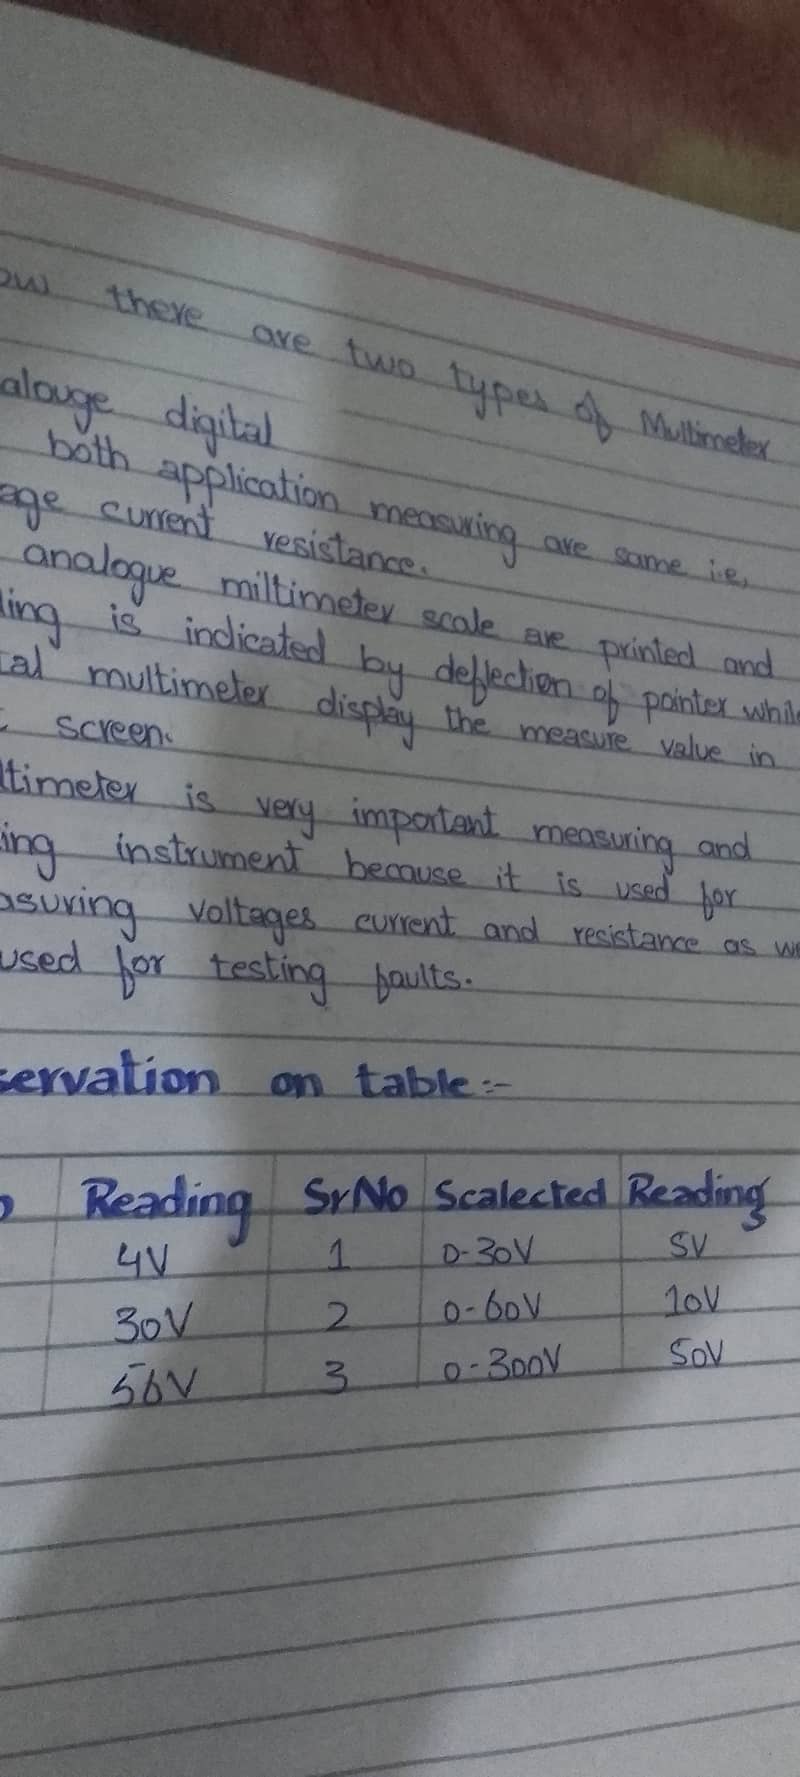 ow there are two types of Multimeter
alouge digital
both application measuring are same i.e,
age current resistance.
analogue miltimeter scale are printed and
ling is indicated by deflection of pointer while
tal multimeter display the measure value in
screen.
ltimeter is very important measuring and
ing instrument because it is used for
asuring voltages current and resistance as we
used for testing faults.
servation on table:-
o Reading SrNo Scalected Reading
4V 1 0-30V 5V
30V 2 0-60V 10V
56V 3 0-300V 50V